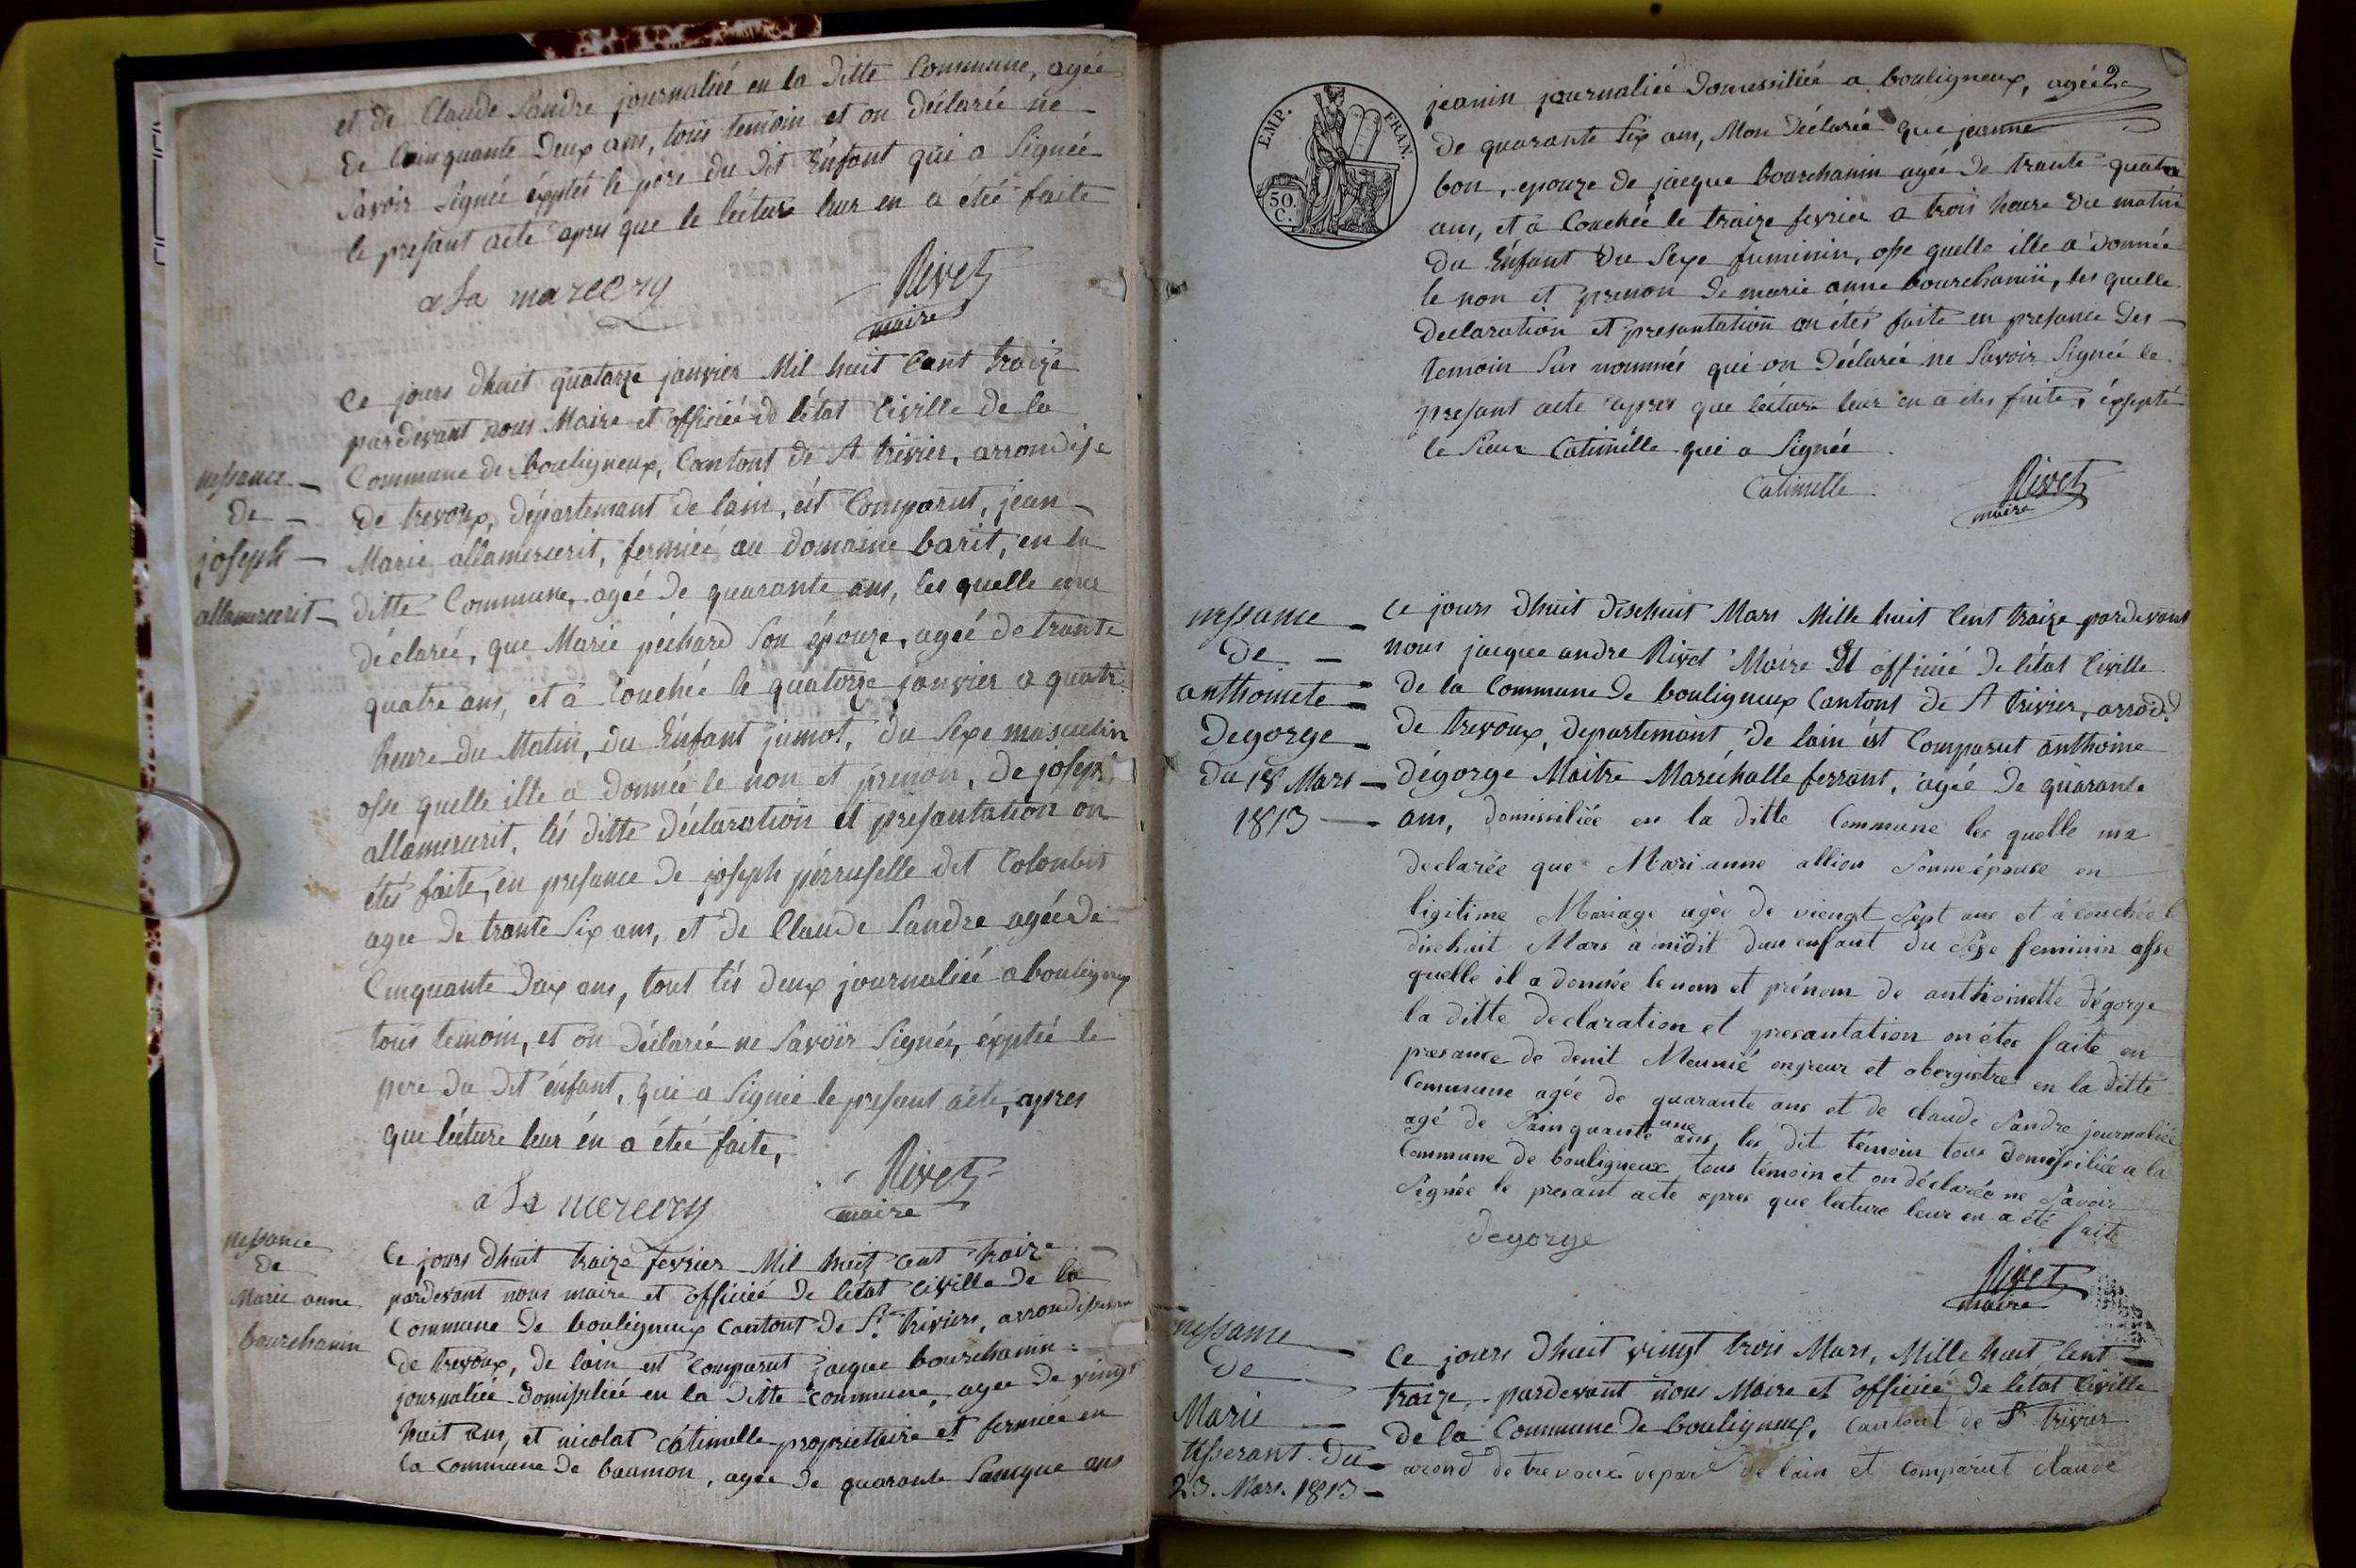 et de Claude Sandre journaliée en la ditte Commune, agée
de Cainquante deux ans, tous temoin et on déclarée ne
Savoir Signée éxptés le pere du dit Enfant qui a Signée
le presant acte apres que le lécture leur en a étée faite
a la marcery
Rivet
maire
nessance
de
joseph
allamercerit
Ce jours dhuit quatorze janvier Mil huit Cent traize
pardevant nous Maire et officiée de létat Civille de la
Commune de bouligneux, Cantont de St trivier, arrondise
de trevoux, département de lain, ést Comparut, jean
Marie allamercerit, fermiée au domaine barit, en la
ditte Commune, agée de quarante ans, les quélle ma
déclarée, que Marie péchard Son épouze, agée de trante
quatre ans, et a Couchée le quatorze janvier a quatr
heure du Matin, du Enfant jumot, du Sexe masculin
osse quelle ille a donnée le non et prenon, de joseph
allamercerit, lés ditte déclaration et présantation on
étés faite, en presance de joseph pérruselle dit Colonbit
agee de trante Six ans, et de Claude Sandre agée de
Cinquante deux ans, tout lés deux journaliée a bouligneux
tous temoin, et on déclarée ne Savoir Signée, éxptée le
pere du dit énfant, qui a Signée le presant acte, apres
que lécture leur én a étée faite,
a la mercery
Rivet
maire
nessance
de
Marie anne
bourchanin
Ce jours dhuit traize fevrier Mil huit cent traize
pardevant nous maire et officiée de létat civille de la
Commune de bouligneux cantont de St. triviers, arrondissem
de trevoux, de lain est comparut jacque bourchanin
journaliée domissiliée en la ditte commune, agee de vingt
huit ans, et nicolat catimelle proprietaire et fermiée en
la commune de baumon, agee de quarante Saincque ans
EMP. FRAN.
50. C.
2
jeanin journaliée domessiliée a bouligneux, agée
de quarante Six ans, Mon Déclarée que jeanne
bon, epouze de jacque bourchanin agée de trante quatre
ans, et a Couchée le traize fevrier a trois heure du matin
du Enfant du Sexe fuminin, osse quelle ille a donnée
le non et prenon de marie anne bourchanin, les quelle
declaration et presantation on étés faite en presance des
temoin Sus nommés qui on Déclarée ne Savoir Signée le
presant acte apres que lécture leur en a étés faite, éxsepté
le Sieur Catimélle qui a Signée
Catimelle
Rivet
maire
nessance
de
anthoinete
Degorge
du 18 Mars
1813
Ce jours dhuit dischuit Mars Mille huit Cent traize pardevant
nous jacque andre Rivet Maire Et officiée de létat Civille
de la Commune de bouligneux Cantont de St trivier, arrod.
de trevoux, departement de lain ést Comparut anthoine
dégorge Maitre Maréchalle ferrant, agée de quarante
ans, domissiliée en la ditte Commune les quelle ma
declarée que Marianne allion Sonne épouse en
ligitime Mariage agée de viengt Sept ans et a couchée le
dischuit Mars a midit dun enfant du Sexe feminin osse
quelle il a donnée le nom et prénom de anthoinette dégorge
la ditte declaration et presantation on étes faite en
presance de denit Meunié ongreur et obergistre en la ditte
Commune agée de quarante ans et de claude Sandre journaliée
agé de Sainquante une ans, les dit témoins tous domissiliée a la
Commune de bouligneux tous témoin et on déclarée ne Savoir
Signée le presant acte apres que lecture leur en a été faite
degorge
Rivet
maire
nessance
de
Marie
tisserant. du
23. Mars. 1813
Ce jours dhuit vingt trois Mars, Mille huit Cent
traize, pardevant nous Maire et officiée, de letat Civille
de la Commune de bouligneux, Cantont de St trivier
arond de trevoux depart de lain et comparut claude